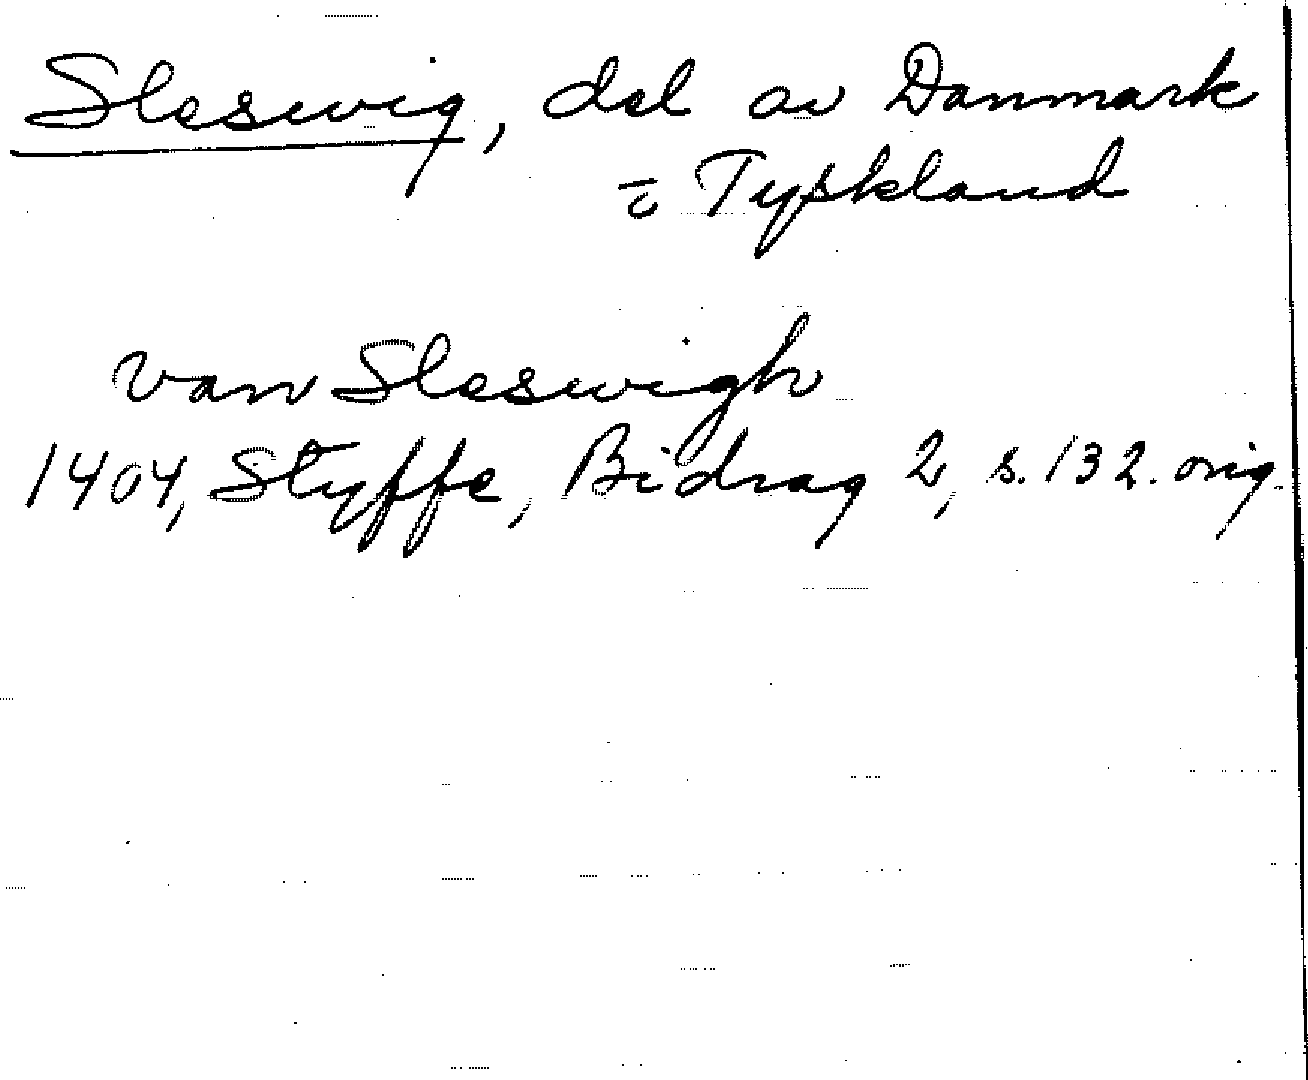 Sleswig, del av Danmark
o Tyskland
van Sleswigh
1404, Styffe, Bidrag 2, s. 132. orig.